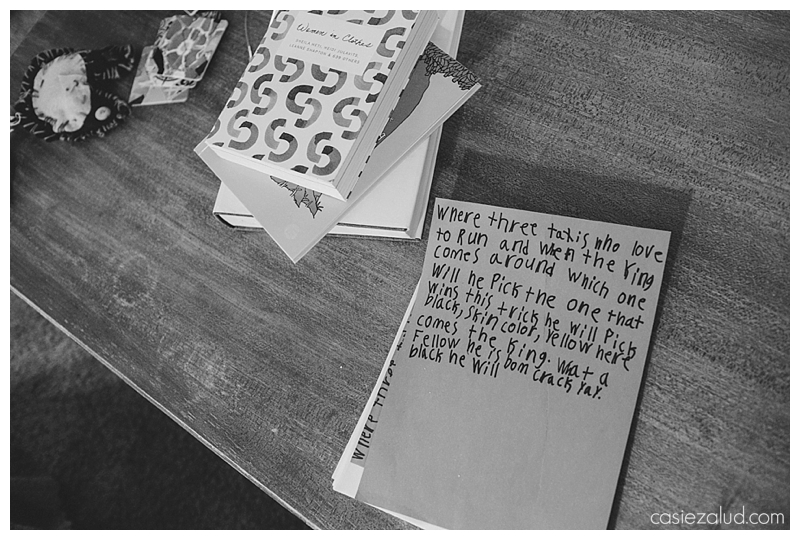 Women in Clothes
SHEILA HETI, HEIDI JULAVITS,
LEANNE SHAPTON & 639 OTHERS
Where three taxis who love
to Run and when the King
comes around which one
Will he Pick the one that
wins this trick he will Pick
black, skin color, yellow here
comes the King. Wat a
Fellow he is bom crack yay.
black he Will
Where three
casiezalud.com